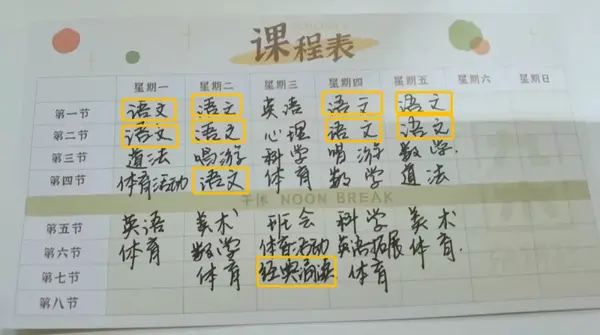 课程表
星期一 星期二 星期三 星期四 星期五 星期六 星期日
第一节 语文 语文 英语 语文 语文
第二节 语文 语文 心理 语文 语文
第三节 道法 唱游 科学 唱游 数学
第四节 体育活动 语文 体育 数学 道法
午休 NOON BREAK
第五节 英语 美术 班会 科学 美术
第六节 体育 数学 体育活动 英语拓展 体育
第七节 体育 经典诵读 体育
第八节